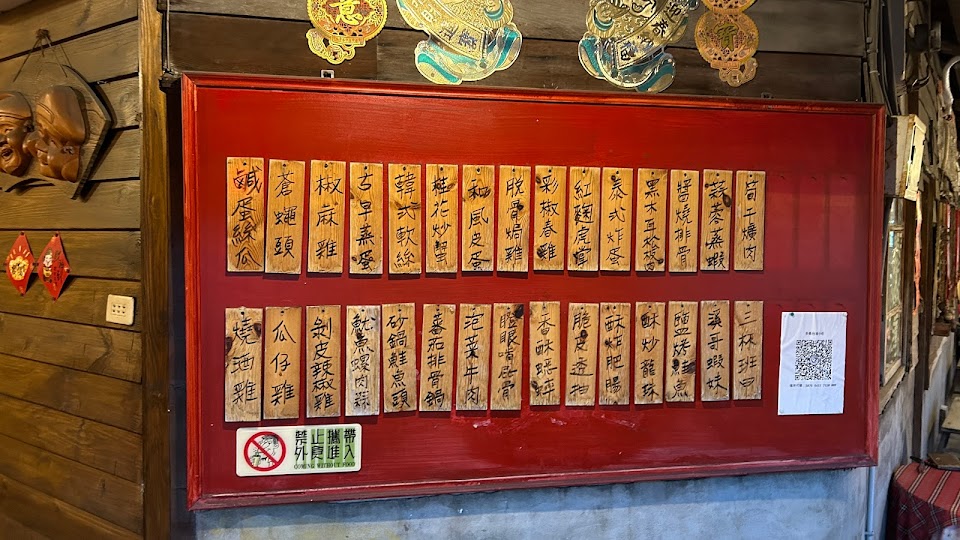 鹹蛋絲瓜
蒼蠅頭
椒麻雞
古早蒸蛋
韓式軟絲
桂花炒蟹
和風皮蛋
脫骨焗雞
彩椒春雞
紅麴虎掌
泰式炸蛋
黑木耳松板肉
醬燒排骨
蒜蓉蒸蝦
筍干燒肉
燒酒雞
瓜仔雞
剝皮辣雞
魷魚螺肉蒜
砂鍋鰱魚頭
番茄排骨鍋
泡菜牛肉
香酥蟋蟀
脆皮透抽
酥炸肥腸
酥炒龍珠
鹽烤魚
溪哥蝦妹
三杯班甲
禁止攜帶
外食進入
COMING WITHOUT FOOD